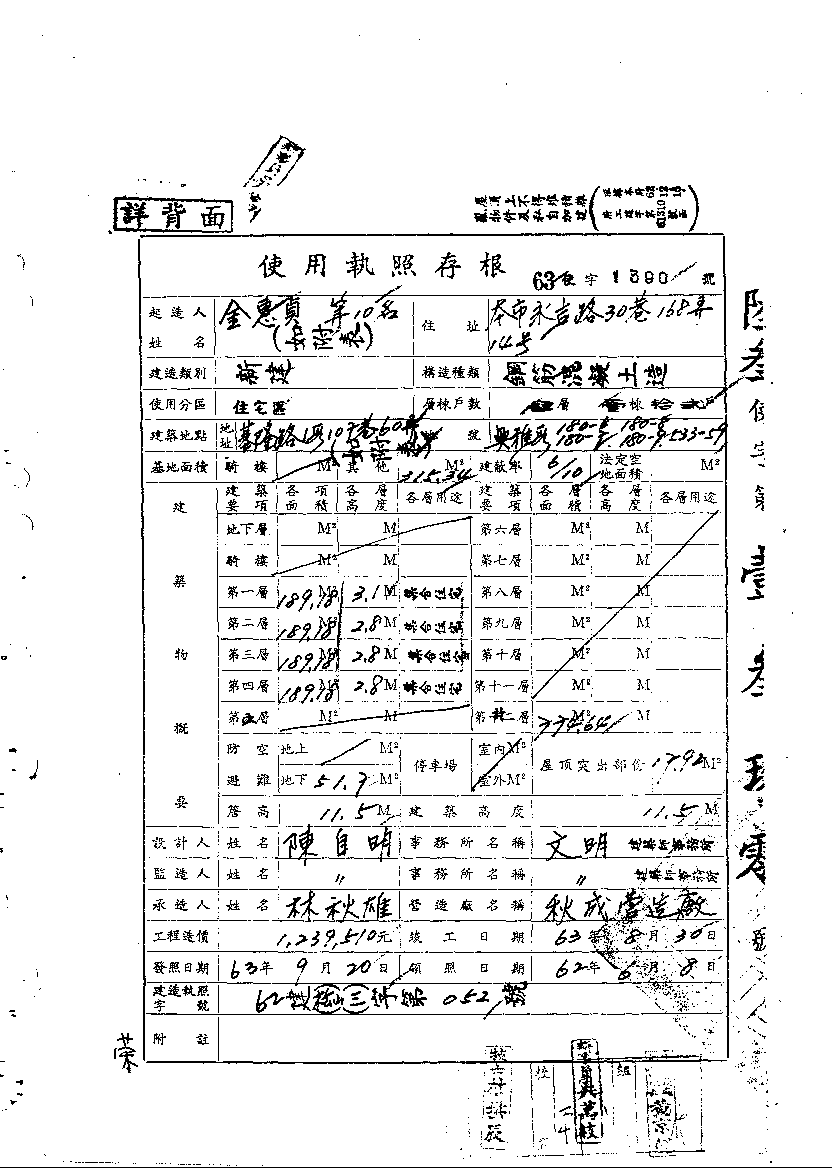 詳背面
屋頂上不得堆積雜
物件及私自加建
使用執照存根
63使字1390號
起造人姓名 金惠貞 等10名 (如附表) 住址 本市永吉路30巷168弄14号
建造類別 新建 構造種類 鋼筋混凝土造
使用分區 住宅區 層棟戶數 層 棟
建築地點 地址 基隆路1段10巷60弄 (如附表) 號
基地面積 騎樓 M² 其他 315.34 M² 建蔽率 6/10 法定空地面積 M²
建築物概要
建築要項 各項面積 各層高度 各層用途 建築要項 各層面積 各層高度 各層用途
地下層 M² M 第六層 M² M
騎樓 M² M 第七層 M² M
第一層 189.18 M² 3.1 M 集合住宅 第八層 M² M
第二層 189.18 M² 2.8 M 集合住宅 第九層 M² M
第三層 189.18 M² 2.8 M 集合住宅 第十層 M² M
第四層 189.18 M² 2.8 M 集合住宅 第十一層 M² M
第五層 M² M 第十二層 774.64 M² M
防空避難 地上 M² 停車場 室內 M² 屋頂突出部份 17.92 M²
地下 51.7 M² 室外 M²
簷高 11.5 M 建築高度 11.5 M
設計人 姓名 陳自明 事務所名稱 文明 建築師事務所
監造人 姓名 〃 事務所名稱 〃 建築師事務所
承造人 姓名 林秋雄 營造廠名稱 秋成營造廠
工程造價 1,239,510元 竣工日期 63年8月30日
發照日期 63年9月20日 領照日期 62年6月8日
建造執照字號 62建(松山)(三)字第052號
附註